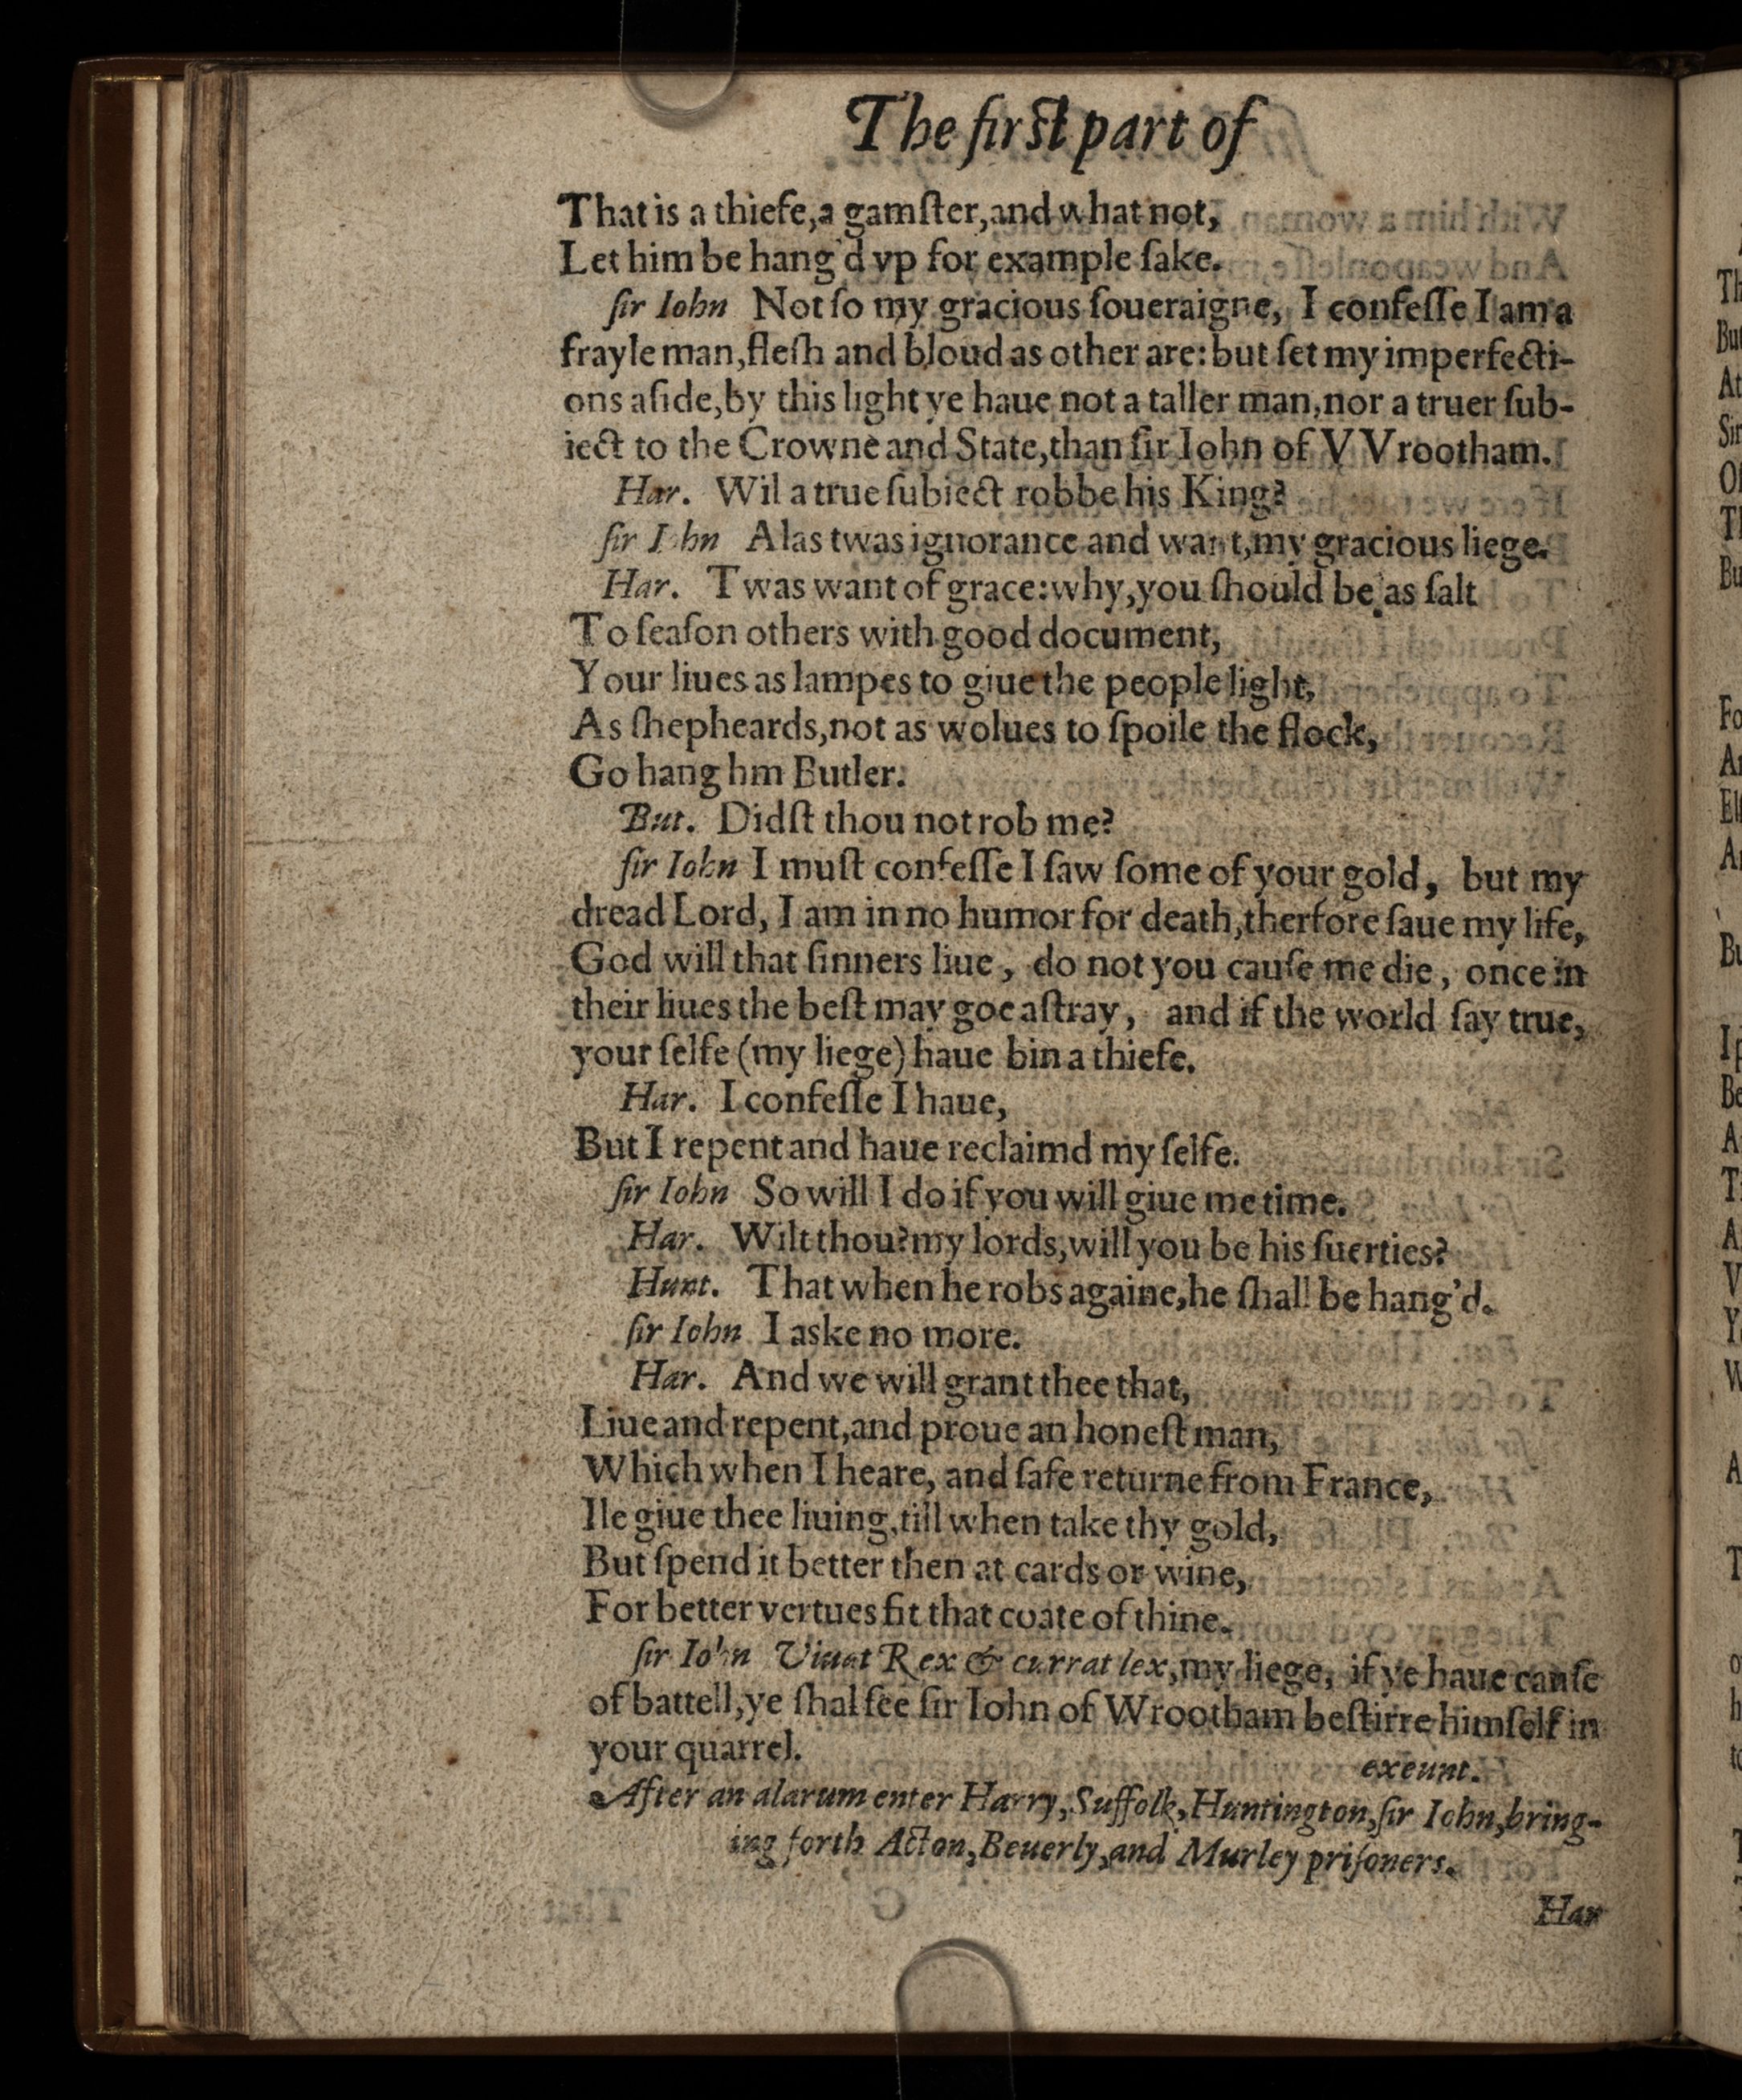 The first part of
That is a thiefe,a gamſter,and what not,
Let him be hang'd vp for example ſake.
ſir Iohn Not ſo my gracious ſoueraigne, I confeſſe I am a
frayle man,fleſh and bloud as other are: but ſet my imperfecti-
ons aſide,by this light ye haue not a taller man,nor a truer ſub-
iect to the Crowne and State,than ſir Iohn of VVrootham.
Har. Wil a true ſubiect robbe his King?
ſir I hn Alas twas ignorance and want,my gracious liege.
Har. Twas want of grace: why,you ſhould be as ſalt
To ſeaſon others with good document,
Your liues as lampes to giue the people light,
As ſhepheards,not as wolues to ſpoile the flock,
Go hang hm Butler.
But. Didſt thou not rob me?
ſir Iohn I muſt confeſſe I ſaw ſome of your gold, but my
dread Lord, I am in no humor for death,therfore ſaue my life,
God will that ſinners liue, do not you cauſe me die, once in
their liues the beſt may goe aſtray, and if the world ſay true,
your ſelfe (my liege) haue bin a thiefe.
Har. I confeſſe I haue,
But I repent and haue reclaimd my ſelfe.
ſir Iohn So will I do if you will giue me time.
Har. Wilt thou? my lords,will you be his ſuerties?
Hunt. That when he robs againe,he ſhall be hang'd.
ſir Iohn I aske no more.
Har. And we will grant thee that,
Liue and repent,and proue an honeſt man,
Which when I heare, and ſafe returne from France,
Ile giue thee liuing,till when take thy gold,
But ſpend it better then at cards or wine,
For better vertues fit that coate of thine.
ſir Iohn Viuat Rex & currat lex,my liege, if ye haue cauſe
of battell,ye ſhal ſee ſir Iohn of Wrootham beſtirre himſelf in
your quarrel.
exeunt.
After an alarum enter Harry,Suffolk,Huntington,ſir Iohn,bring-
ing forth Acton,Beuerly,and Murley priſoners.
Har